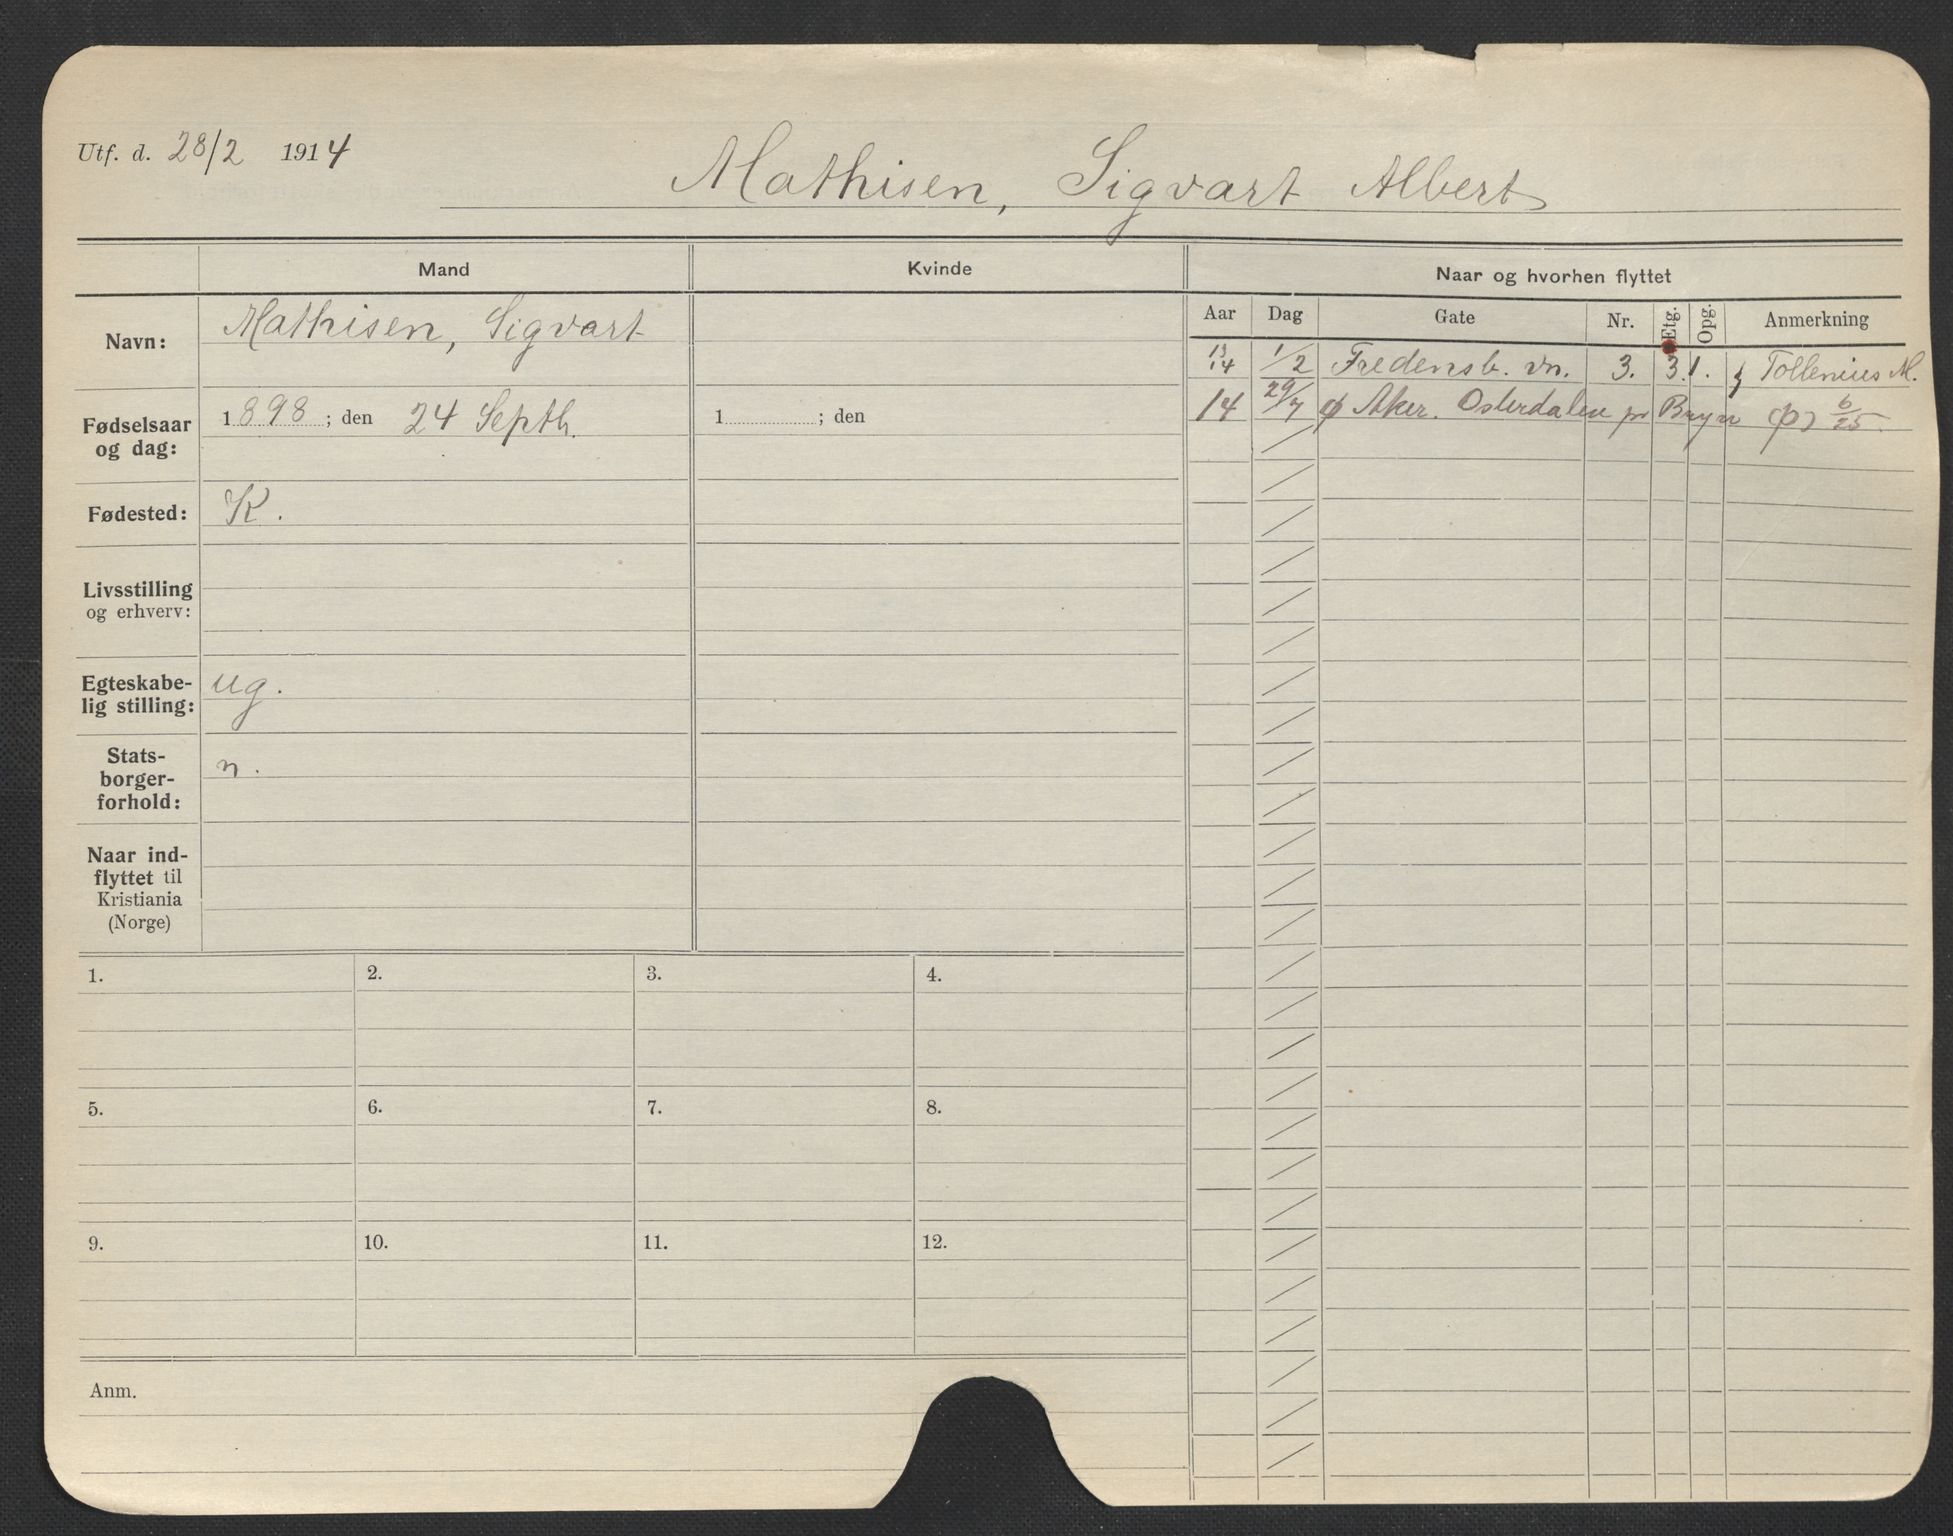 Utf. d. 28/2 1914
Mathisen, Sigvart Albert
Mand
Kvinde
Naar og hvorhen flyttet
Navn: Mathisen, Sigvart
Fødselsaar og dag: 1898; den 24 Septb. 1 ; den
Fødested: K.
Livsstilling og erhverv:
Egteskabe-
lig stilling: ug.
Stats-
borger-
forhold: n.
Naar ind-
flyttet til
Kristiania
(Norge)
Aar Dag Gate Nr. Etg. Opg. Anmerkning
13/14 1/2 Fredensb. vn. 3. 3. 1. Tollenius M.
14 29/7 Aker. Osterdalen pr Bryn 6/25.
1. 2. 3. 4.
5. 6. 7. 8.
9. 10. 11. 12.
Anm.